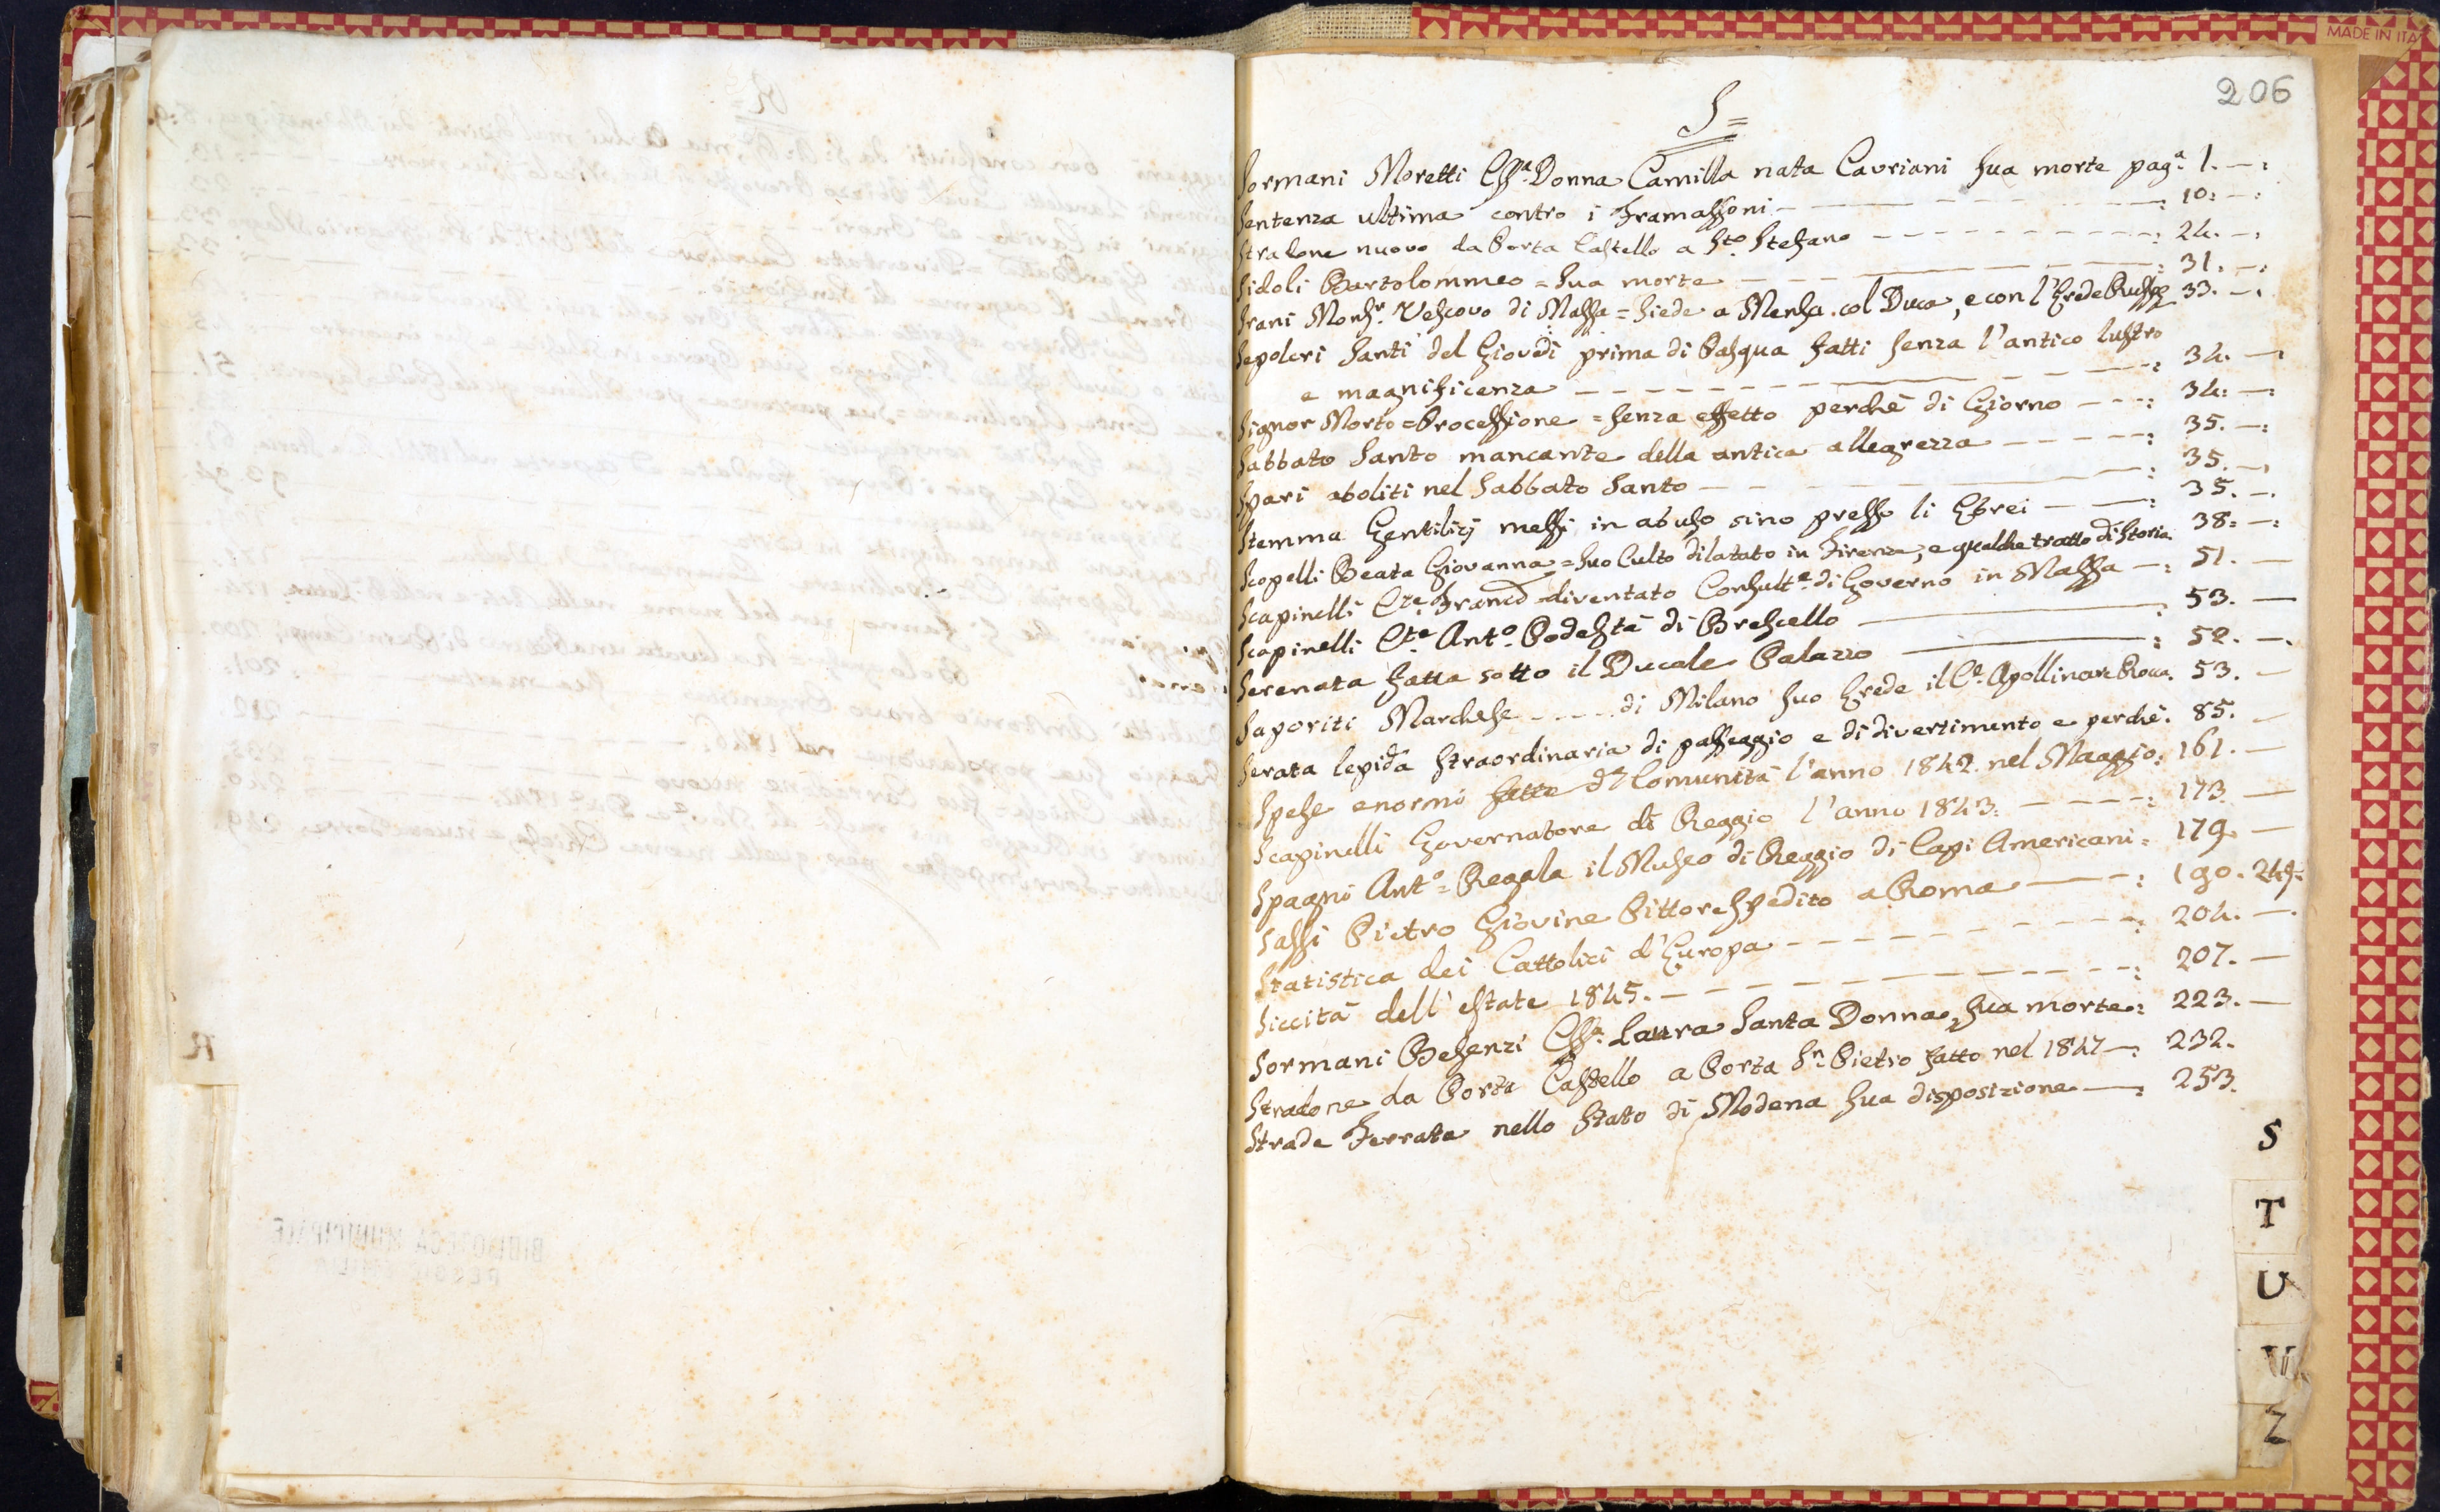 MADE IN ITA
206
S=
Sormani Moretti Cssa. Donna Camilla nata Cavriani sua morte paga. 1. —:
Sentenza ultima contro i Framassoni — — — : 10: —:
Stradone nuovo da Porta Castello a Sto. Stefano — — — : 24. —:
Sidoli Bartolommeo = sua morte — — — : 31. —:
Strani Monsr. Vescovo di Massa = siede a Mensa col Duca, e con l'Erede 33. —.
Sepolcri Santi del Giovedi prima di Pasqua fatti senza l'antico lustro
e magnificenza — — — : 34. —
Signor Morto = Processione = senza effetto perchè di Giorno — — : 34: —:
Sabbato Santo mancante della antica allegrezza — — — : 35. —:
Spari aboliti nel Sabbato Santo — — — : 35. —,
Stemma Gentilizj messi in abuso sino presso li Ebrei — — : 35. —.
Scopelli Beata Giovanna = suo Culto dilatato in Firenze, e qualche tratto di Storia 38: —:
Scapinelli Cte. Franco = diventato Consulte. di Governo in Massa —: 51. —
Scapinelli Cte. Anto. Podestà di Brescello — : 53. —
Serenata fatta sotto il Ducale Palazzo — : 52. —.
Saporiti Marchese ---- di Milano suo Erede il Ce. Apollinare Rocca. 53. —
Serata lepida straordinaria di passeggio e di divertimento e perchè. 85. —
Spese enormi fatte da Comunità l'anno 1842. nel Maggio: 161. —
Scapinelli Governatore di Reggio l'anno 1843. — — — : 173 —
Spagni Anto. = Regala il Museo di Reggio di Capi Americani = 179. —
Sassi Pietro Giovine Pittore spedito a Roma — — : 190. 249.
Statistica dei Cattolici d'Europa — — — : 204. —.
Siccità dell'estate 1845. — — — : 207. —
Sormani Besenzi Cssa. Laura Santa Donna, sua morte: 223. —
Stradone da Porta Castello a Porta Sn. Pietro fatto nel 1847 —: 232.
Strade Ferrate nello Stato di Modena sua disposizione — : 253.
S
T
U
V
Z